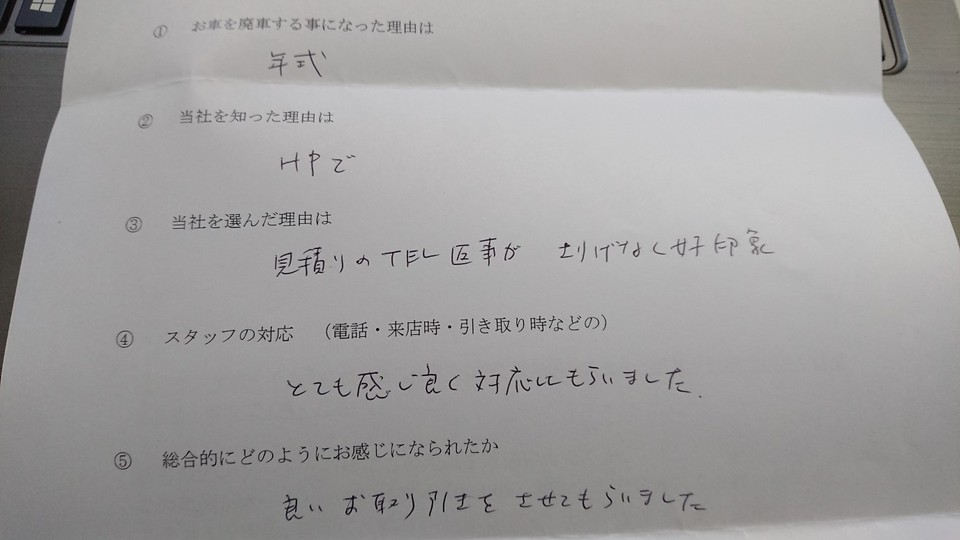 ① お車を廃車する事になった理由は
年式
② 当社を知った理由は
HPで
③ 当社を選んだ理由は
見積りのTEL返事が さりげなく好印象
④ スタッフの対応 (電話・来店時・引き取り時などの)
とても感じ良く対応してもらいました.
⑤ 総合的にどのようにお感じになられたか
良い お取り引きを させてもらいました